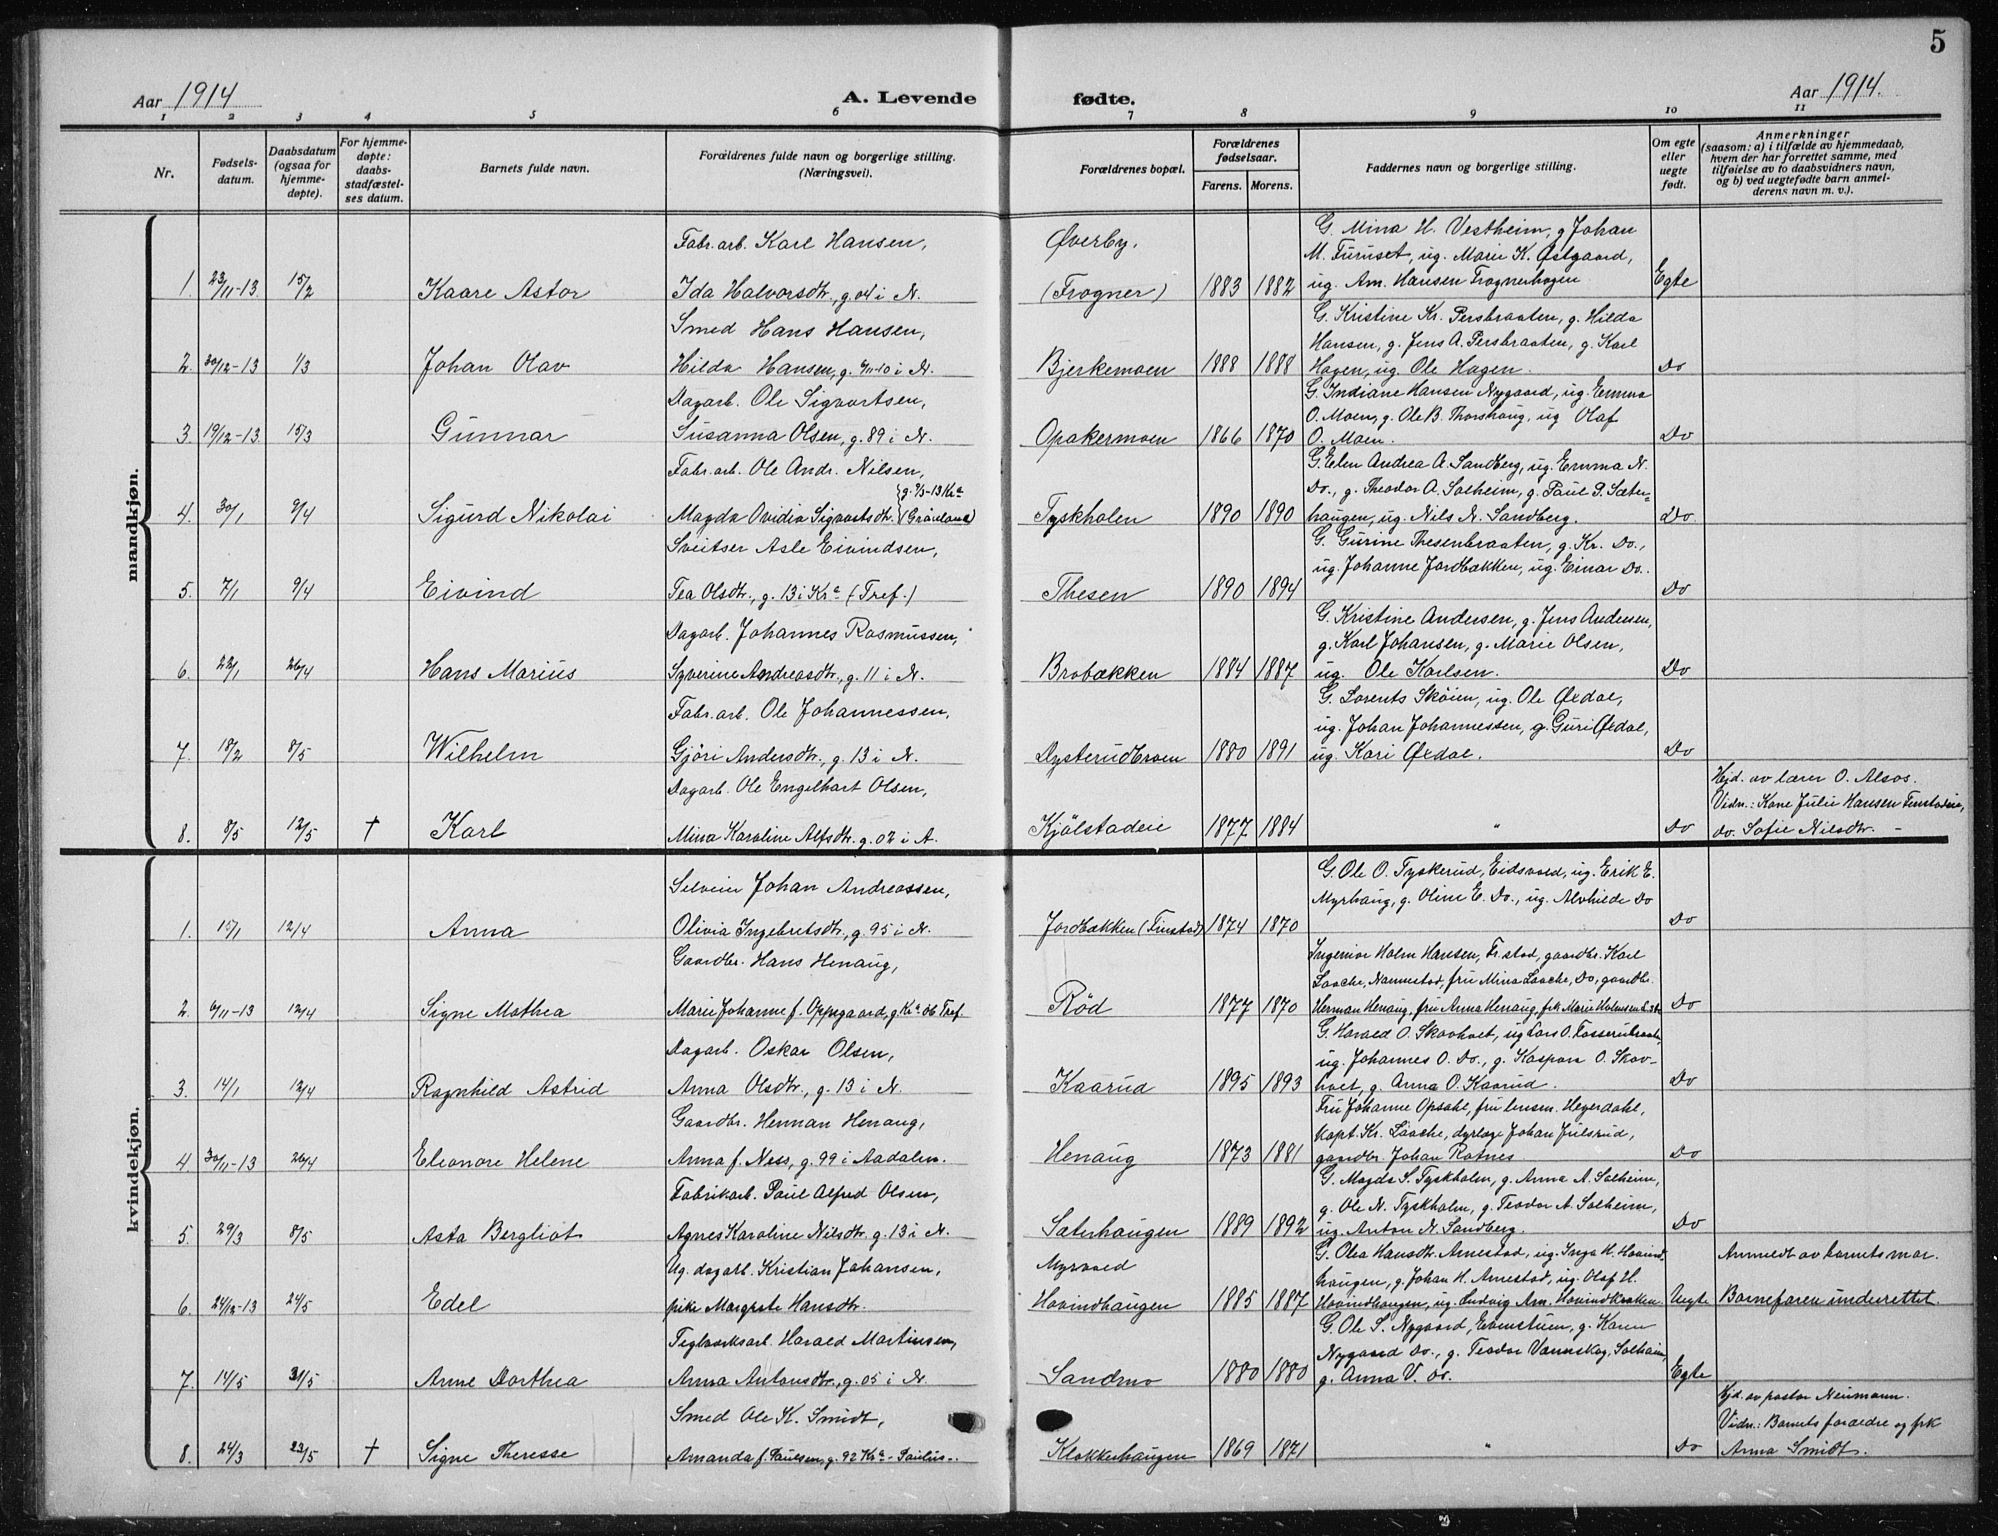 5
Aar 1914
A. Levende
fødte.
Aar 1914.
1 2 3 4 5 6 7 8 9 10 11
Nr.
Fødsels-
datum.
Daabsdatum
(ogsaa for
hjemme-
døpte).
For hjemme-
døpte:
daabs-
stadfæstel-
ses datum.
Barnets fulde navn.
Forældrenes fulde navn og borgerlige stilling.
(Næringsvei).
Forældrenes bopæl.
Forældrenes
fødselsaar.
Farens. Morens.
Faddernes navn og borgerlige stilling.
Om egte
eller
uegte
født.
Anmerkninger
(saasom: a) i tilfælde av hjemmedaab,
hvem der har forrettet samme, med
tilføielse av to daabsvidners navn,
og b) ved uegtefødte barn anmel-
derens navn m. v.).
mandkjøn.
1. 23/11-13 15/2 Kaare Astor
Fabr.arb. Karl Hansen,
Ida Halvorsdtr., g. 04 i N.
Øverby.
(Frogner) 1883 1882
G. Mina H. Vestheim, g Johan
M. Furuset, ug. Marie K. Østgaard,
ug. Am. Hansen Frognerhagen
Egte
2. 30/12-13 1/3 Johan Olav
Smed Hans Hansen,
Hilda Hansen, g. 6/11-10 i N.
Bjerkemoen 1888 1888
G. Kristine Kr. Persbraaten, g. Hilda
Hansen, g. Jens A. Persbraaten, g. Karl
Hagen, ug. Ole Hagen.
Do
3 19/12-13 15/3 Gunnar
Dagarb. Ole Sigvartsen,
Susanna Olsen, g. 89 i N.
Opakermoen 1866 1870
G. Indiane Hansen Nygaard, ug. Emma
O. Moen, g. Ole B. Thorshaug, ug Olaf
O. Moen.
Do
4. 30/1 9/4 Sigurd Nikolai
Fabr.arb. Ole Andr. Nilsen,
Magda Ovidia Sigvartsdtr. {g. 9/3-13 Kra (Grønland)
Tyskholen 1890 1890
G. Elen Andrea A. Sandberg, ug. Emma N.
Do., g. Theodor A. Solheim, g. Paul P. Sæter-
haugen, ug. Nils N. Sandberg.
Do
5. 7/1 9/4 Eivind
Sveitser Asle Eivindsen,
Tea Olsdtr., g. 13 i Kra (Tref.)
Thesen 1890 1894
G. Gurine Thesenbraaten, g. Kr. Do.,
ug. Johanne Jordbækken, ug. Einar Do.
Do
6. 22/1 26/4 Hans Marius
Dagarb. Johannes Rasmussen,
Syverine Andreasdtr., g. 11 i N.
Brobækken 1884 1887
G. Kristine Andersen, g. Jens Andersen,
g. Karl Johansen, g. Marie Olsen,
ug. Ole Karlsen.
Do
7. 18/2 8/5 Wilhelm
Fabr.arb. Ole Johannessen,
Gjøri Andersdtr., g. 13 i N.
Dysterudbroen 1880 1891
G. Lorents Skøien, ug. Ole Øxdal,
ug. Johan Johannessen, g. Guri Øxdal,
ug. Kari Øxdal.
Do
8. 8/5 12/5 † Karl
Dagarb. Ole Engelhart Olsen,
Mina Karoline Alfsdtr. g. 02 i A.
Kjølstadeie 1877 1884
"
Do
Hjd. av lærer O. Alsos.
Vidn.: Kone Julie Hansen Finstadeie,
do. Sofie Nilsdtr. –
kvindekjøn.
1. 15/1 12/4 Anna
Selveier Johan Andreassen,
Olivia Ingebretsdtr., g. 95 i N.
Jordbækken (Finstad) 1874 1870
G. Ole O. Tyskerud, Eidsvold, ug. Erik E.
Myrhaug, g. Oline E. Do., ug. Alvhilde Do
Do
2. 6/11-13 12/4 Signe Mathea
Gaardbr. Hans Henaug,
Marie Johanne f. Oppegaard, g. Kra 06 Tref.
Rød 1877 1870
Ingeniør Holm Hansen, Fr.stad, gaardbr. Karl
Laache, Nannestad, fru Mina Laache, Do, gaardbr.
Herman Henaug, fru Anna Henaug, frk Marie
Do
3. 14/1 12/4 Ragnhild Astrid
Dagarb. Oskar Olsen,
Anna Olsdtr., g. 13 i N.
Kaarud 1895 1893
G. Harald O. Skovhvet, ug Lars O. Fosserudbraaten,
ug. Johannes O. Do., g. Kaspara O. Skov-
hvet, g. Anna O. Kaarud.
Do
4 30/11-13 26/4 Eleonore Helene
Gaardbr. Herman Henaug,
Anna f. Ness, g. 99 i Aadalen.
Henaug 1873 1881
Fru Johanne Opsahl, fru Heyerdahl,
Kapt. Kr. Laache, dyrlæge Johan Julsrud,
gaardbr. Johan Rotnes
Do
5. 29/3 8/5 Asta Bergliot
Fabrikarb. Paul Alfred Olsen,
Agnes Karoline Nilsdtr. g. 13 i N.
Sæterhaugen 1889 1892
G. Magda S. Tyskholen, g. Anna A. Solheim,
g. Ole N. Tyskholm, g. Teodor A. Solheim,
ug. Anton N. Sandberg.
Do
6. 24/12-13 24/5 Edel
Ug. dagarb. Kristian Johansen,
pike Margrete Hansdtr.
Myrvold
Hovindhaugen 1885 1887
G. Olea Hansdtr. Arnestad, ug. Inga H. Hovind-
haugen, g. Johan H. Arnestad, ug. Olaf H.
Hovindhaugen, ug. Ludvig Am. Hovindkroken.
Uegte
Anmeldt av barnets mor.
Barnefaren underrettet.
7. 14/5 31/5 Anne Dorthea
Teglverksarb. Harald Martinsen,
Anna Antonsdtr., g. 05 i N.
Sandmo 1880 1880
G. Ole S. Nygaard, Evenstuen, g. Karen
Nygaard Do., g. Teodor Vannskog, Solheim,
g. Anna V. do.
Egte
8. 24/3 23/5 † Signe Therese
Smed Ole K. Smidt,
Amanda f. Paulsen, g. 92 Kra - Paulus-.
Klokkerhaugen 1869 1871
"
Do
Hjd. av pastor Neumann.
Vidn.: Barnets forældre og frk
Anna Smidt.